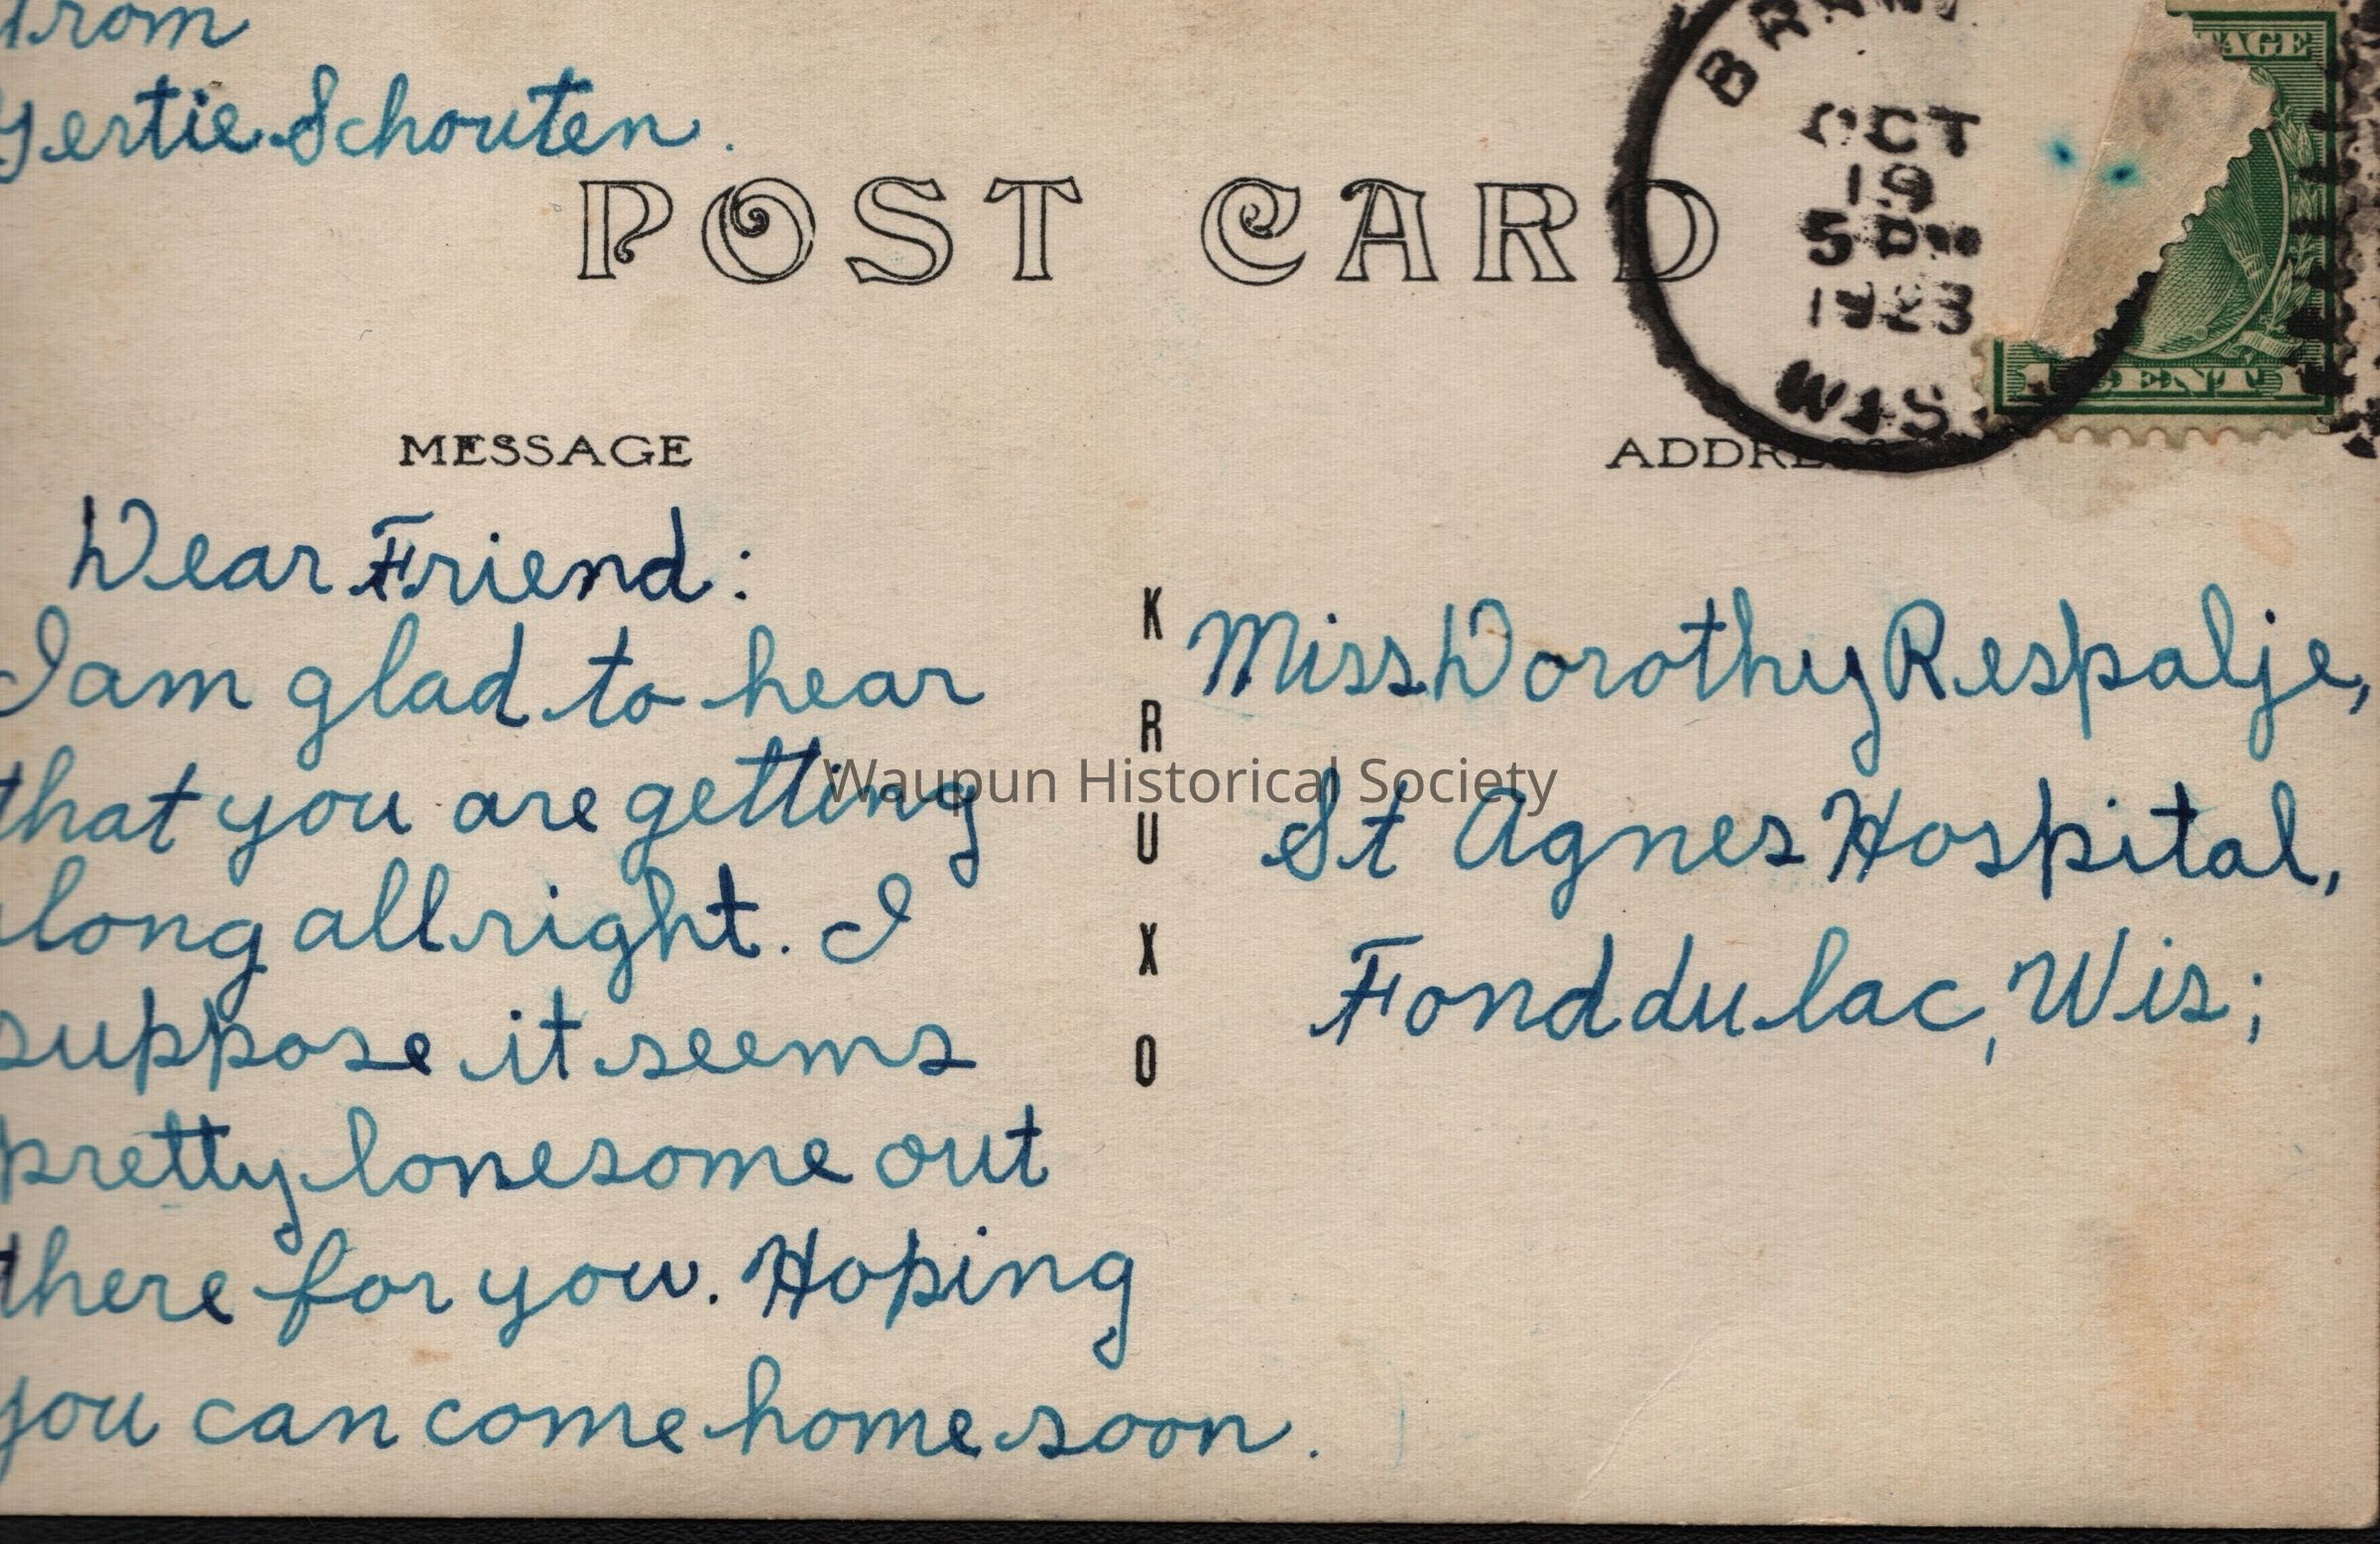 from
Gertie Schouten.
POST CARD
OCT
19
5 PM
1923
WIS.
TAGE
1 CENT 1
MESSAGE
ADDRESS
Dear Friend:
I am glad to hear
that you are getting
along all right. I
suppose it seems
pretty lonesome out
there for you. Hoping
you can come home soon.
KRUXO
Miss Dorothy Respalje,
St Agnes Hospital,
Fond du lac, Wis;
Waupun Historical Society